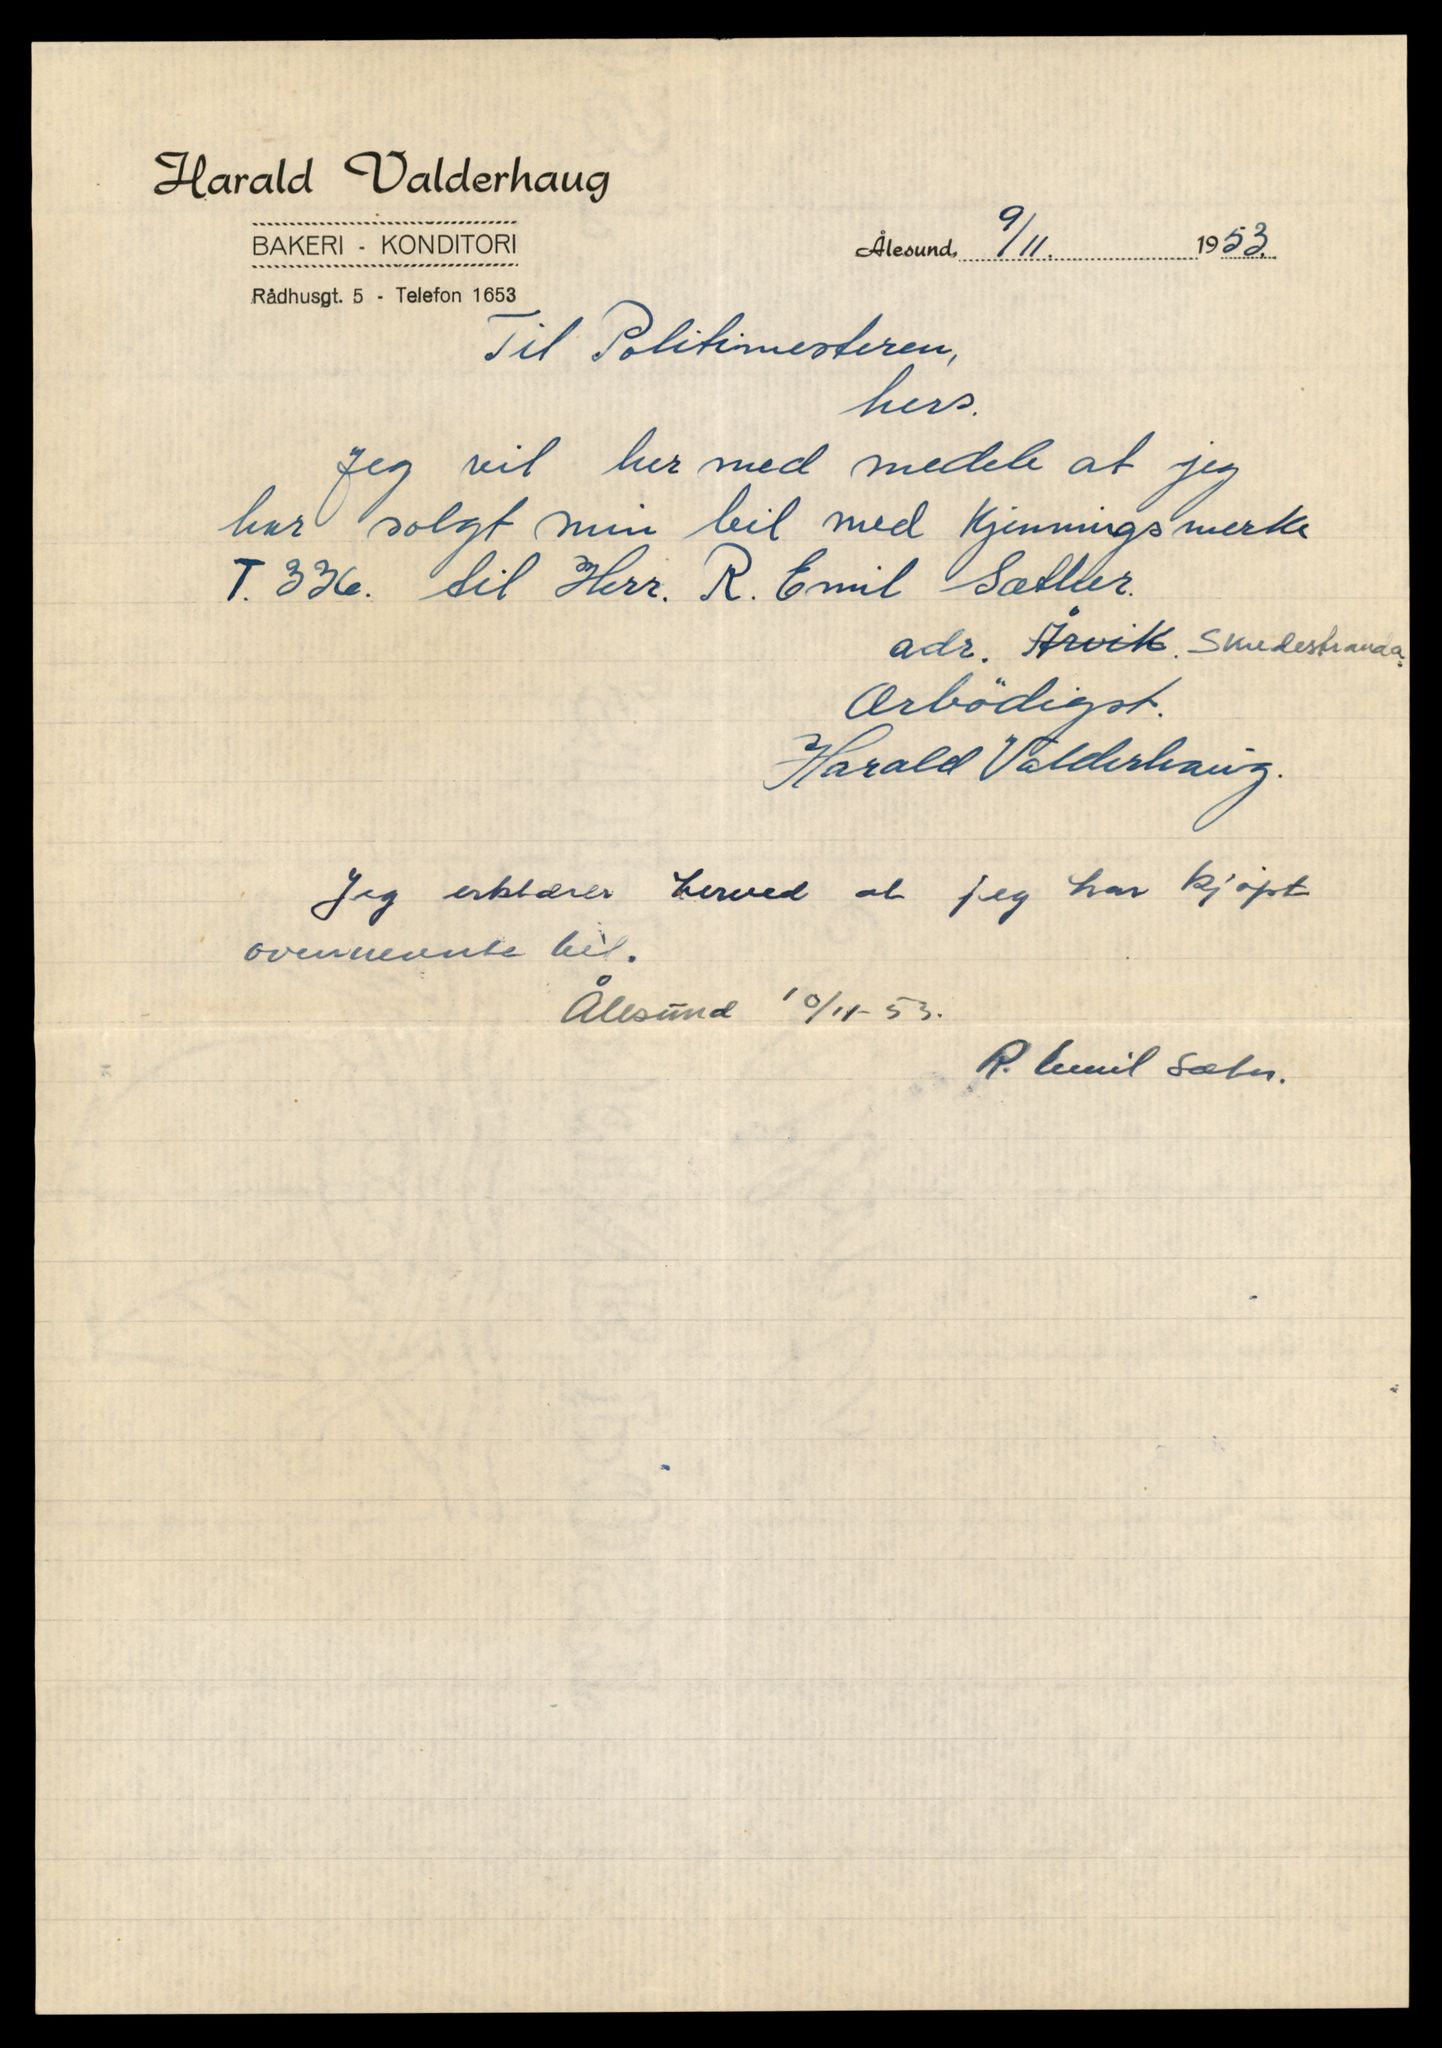 Harald Valderhaug
BAKERI - KONDITORI
Rådhusgt. 5 - Telefon 1653
Ålesund, 9/11. 1953.
Til Politimesteren,
hers.
Jeg vil her med medele at jeg
har solgt min bil med Kjenningsmerke
T. 336. til Herr. R. Emil Sætter.
adr. Årvik. Smedestranda.
Ærbödigst.
Harald Valderhaug.
Jeg erklærer herved at jeg har kjøpt
ovennevnte bil.
Ålesund 10/11-53.
R. Emil Sæter.